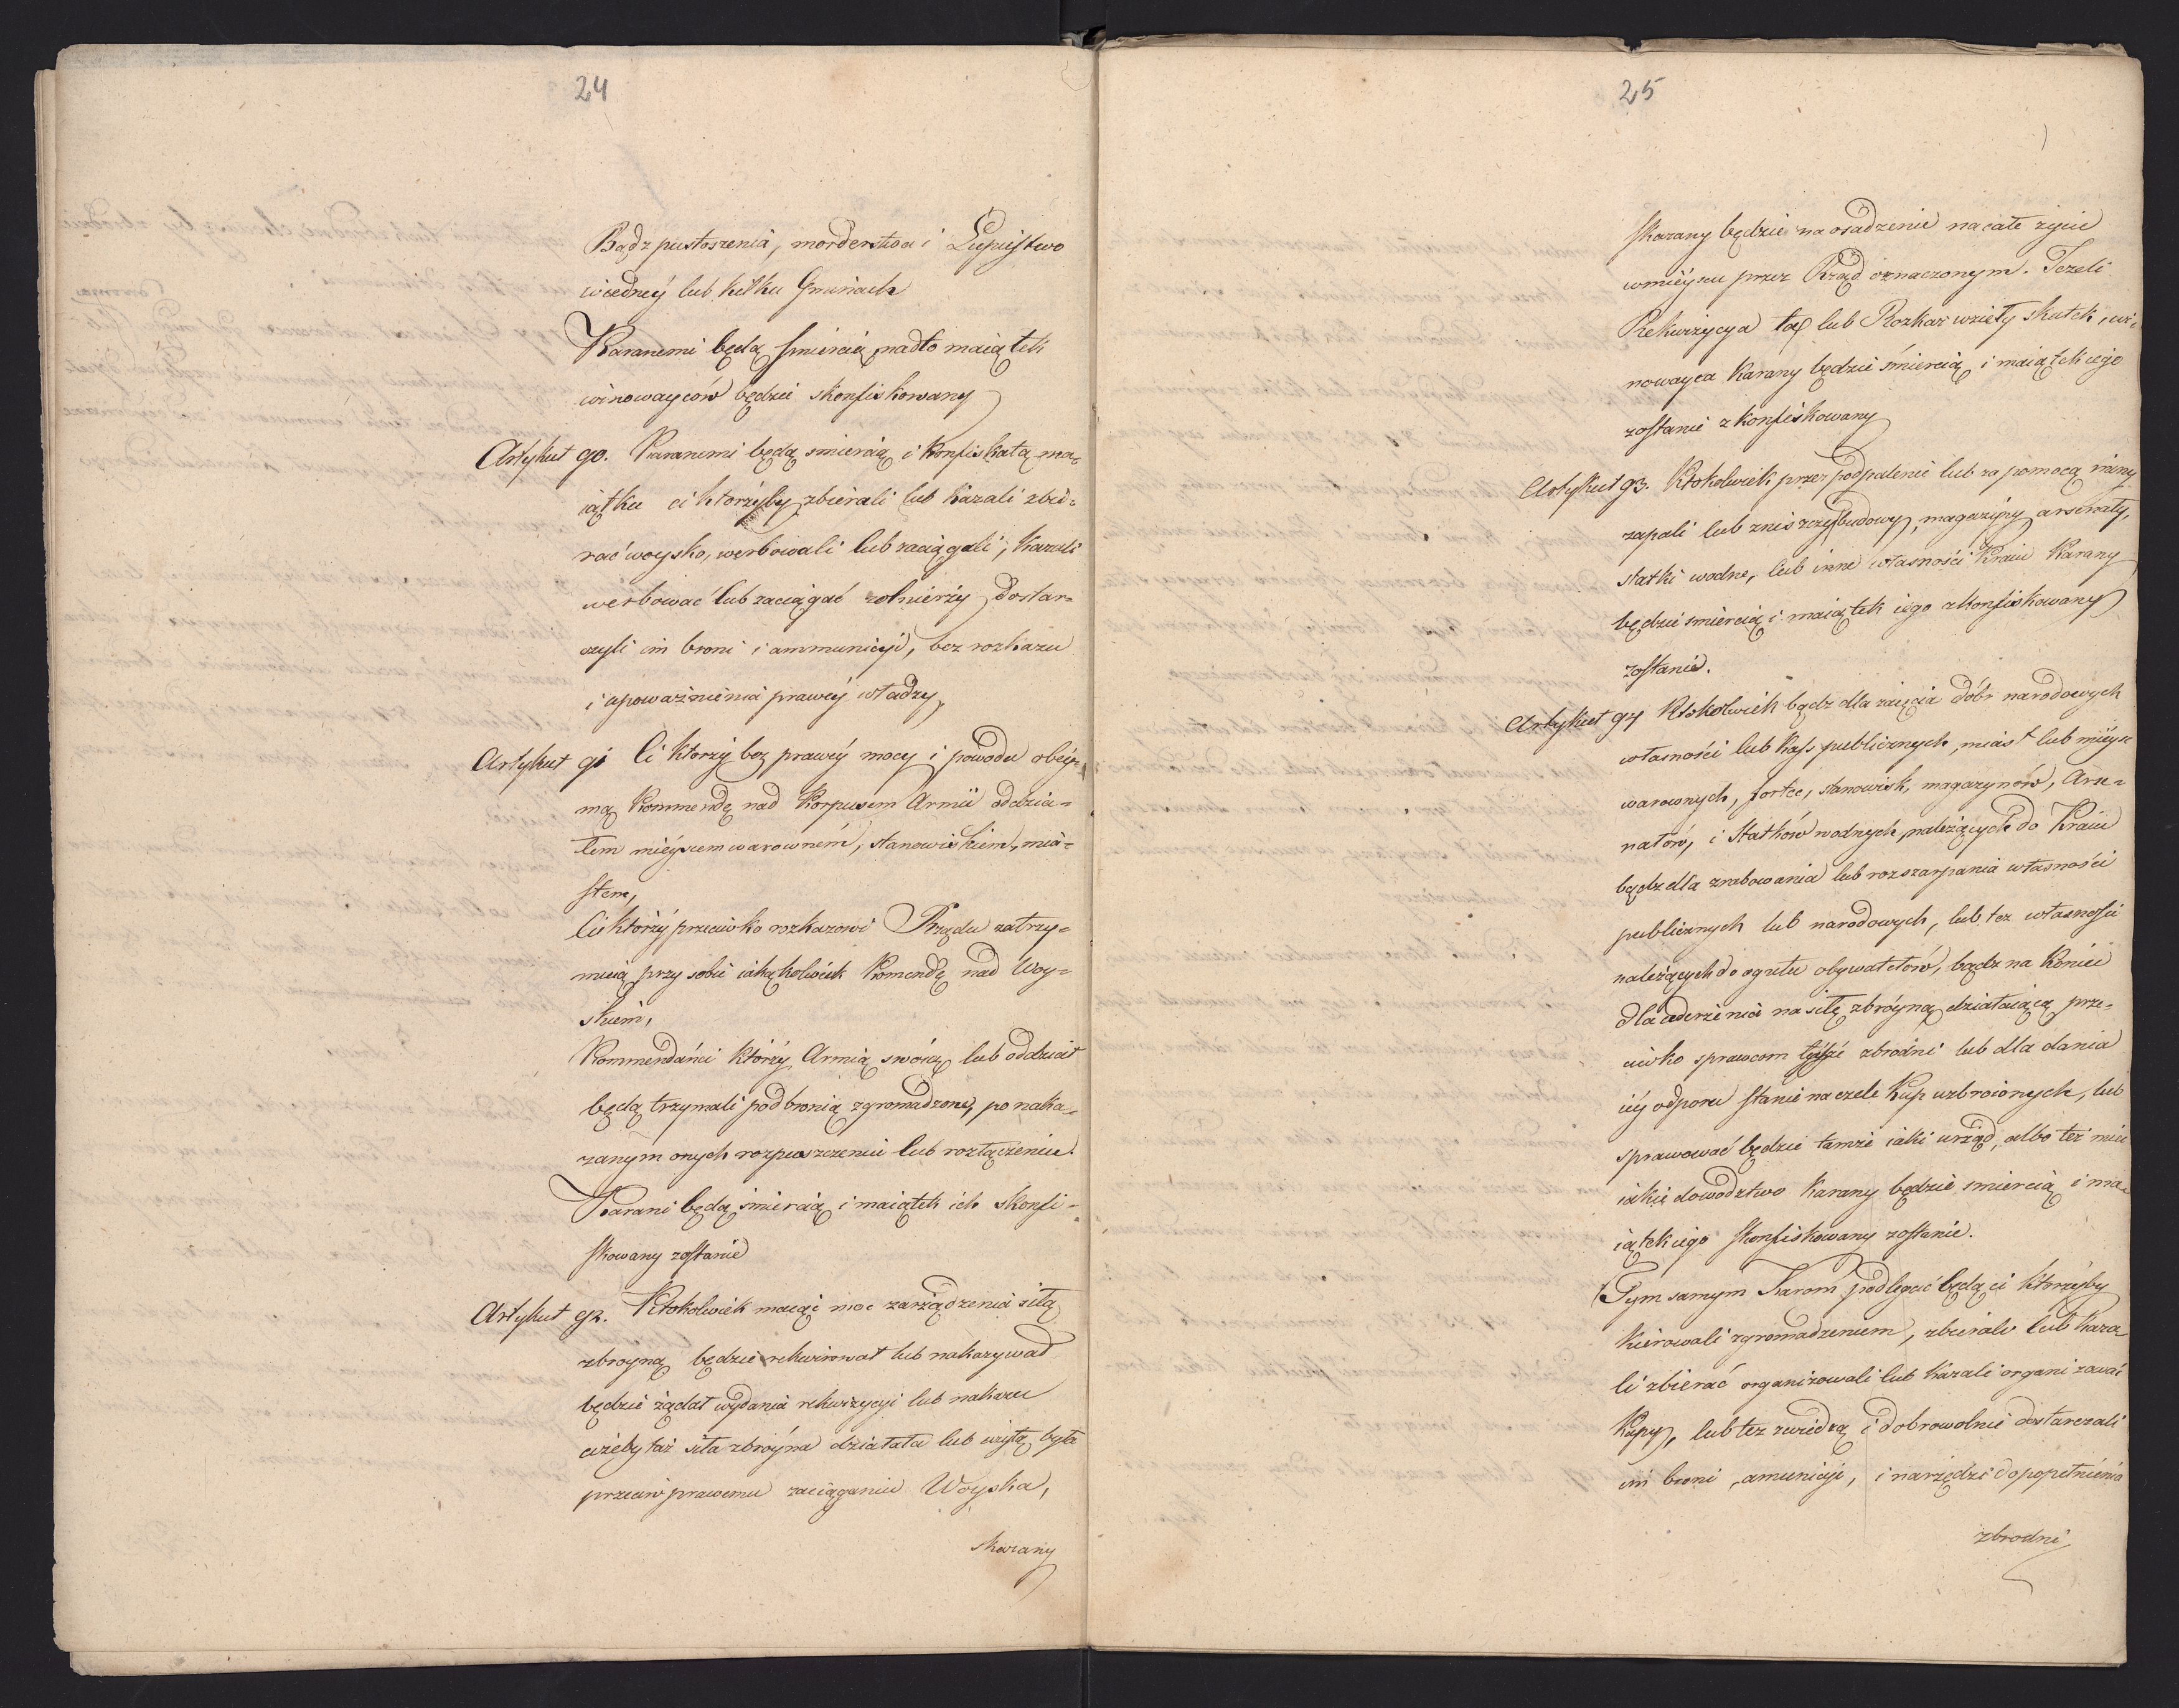 24
Bądz pustoszenia, morderstwa i Łupiestwo
wiedney lub kilku Gminach
Karanemi będą śmiercią nadto maiątek
winowayców będzie skonfiskowany
Artykuł 90. Karanemi będą śmiercią i konfiskatą ma=
iątku ci ktorzyby zbierali lub kazali zbie=
rać woysko, werbowali lub zaciągali, kazali
werbować lub zaciągać zołnierzy dostar=
czyli im broni i ammunicyi, bez rozkazu
i upoważnienia prawey władzy,
Artykuł 91 Ci ktorzy bez prawey mocy i powodu obey=
mą Kommendę nad Korpusem Armii oddzia=
łem mieyscem warownem, stanowiskiem, mia=
stem,
Ci ktorzy przeciwko rozkazowi Rządu zatrzy=
muią przy sobie iakążkolwiek Komendę nad Woy=
skiem,
Kommendańci którzy Armią swoią lub oddział
będą trzymali pod bronią zgromadzone, po naka=
zanym onych rozpuszczeniu lub rozłączeniu.
Karani będą śmiercią i maiątek ich skonfi=
skowany zostanie
Artykuł 92. Ktokolwiek maiąc moc zarządzenia siłą
zbroyną będzie rekwirował lub nakazywał
będzie żądał wydania rekwizycyi lub nakazu
ażeby taż siła zbroyna działała lub użytą była
przeciw prawemu zaciąganiu Woyska,
skazany
25
skazany będzie na osadzenie na całe życie
w mieyscu przez Rząd oznaczonym. Jeżeli
Rekwizycya ta lub Rozkaz wzięły skutek, wi=
nowayca karany będzie śmiercią i maiątek iego
zostanie zkonfiskowany
Artykuł 93. Ktokolwiek przez podpalenie lub za pomocą miny
zapali lub zniszczy budowy, magazyny arsenały,
statki wodne, lub inne własności Kraiu karany
będzie śmiercią i maiątek iego zkonfiskowany
zostanie.
Artykuł 94 Ktokolwiek bądz dla zaięcia dóbr narodowych
własności lub Kass publicznych, miast lub mieysc
warownych, fortec, stanowisk, magazynów, Arse=
nałów, i Statków wodnych należących do Kraiu
bądz dla zrabowania lub rozszarpania własności
publicznych lub narodowych, lub tez własności
należących do ogułu obywatelów, bądz na koniec
dla uderzenia na siłę zbróyną działaiącą prze=
ciwko sprawcom tyiże zbrodni lub dla dania
iey odporu stanie na czele Kup uzbroionych, lub
sprawować będzie tamże iaki urząd, albo też mieć
iakie dowództwo karany będzie śmiercią i ma=
iątek iego skonfiskowany zostanie.
Tym samym Karom podlegać będą ci ktorzyby
kierowali zgromadzeniem, zbierali lub kaza=
li zbierać organizowali lub kazali organizować
Kupy, lub tez zwiedzą i dobrowolnie dostarczali
im broni, amunicyi, i narzędzi do popełnienia
zbrodni